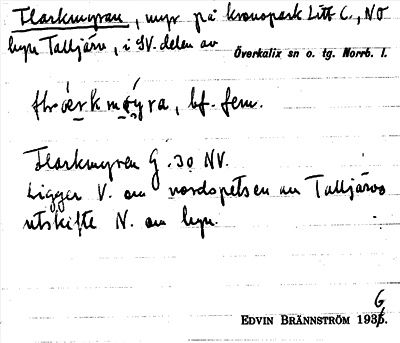 Flarkmyran, myr på kronopark Litt C., NO
byn Talljärv, i SV. delen av
Överkalix sn o. tg. Norrb. l.
bf. fem.
Flarkmyren G. 30 NV.
Ligger V. om nordspetsen av Talljärvs
utskifte N. om byn.
EDVIN BRÄNNSTRÖM 1936.